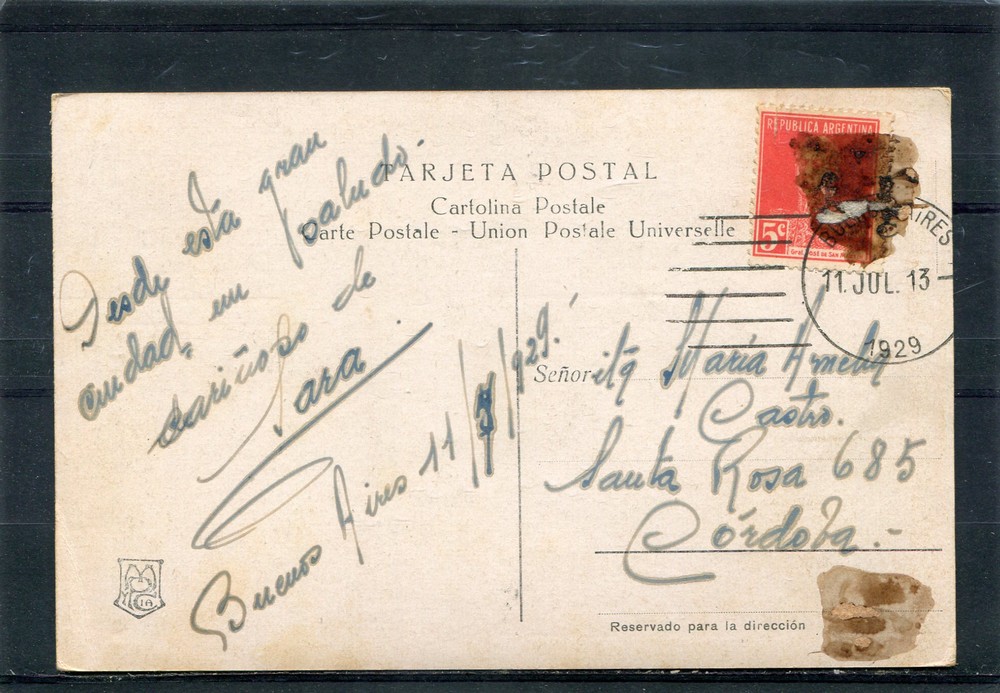 TARJETA POSTAL
Cartolina Postale
Carte Postale - Union Postale Universelle
REPUBLICA ARGENTINA
5c
Gral. JOSE DE SAN M
BUEN AIRES
11 JUL. 13
1929
Desde esta gran
ciudad, un saludo
cariñoso de
Sara
Buenos Aires 11/7/929.
Señorita María Amelia
Castro.
Santa Rosa 685
Córdoba.-
Reservado para la dirección